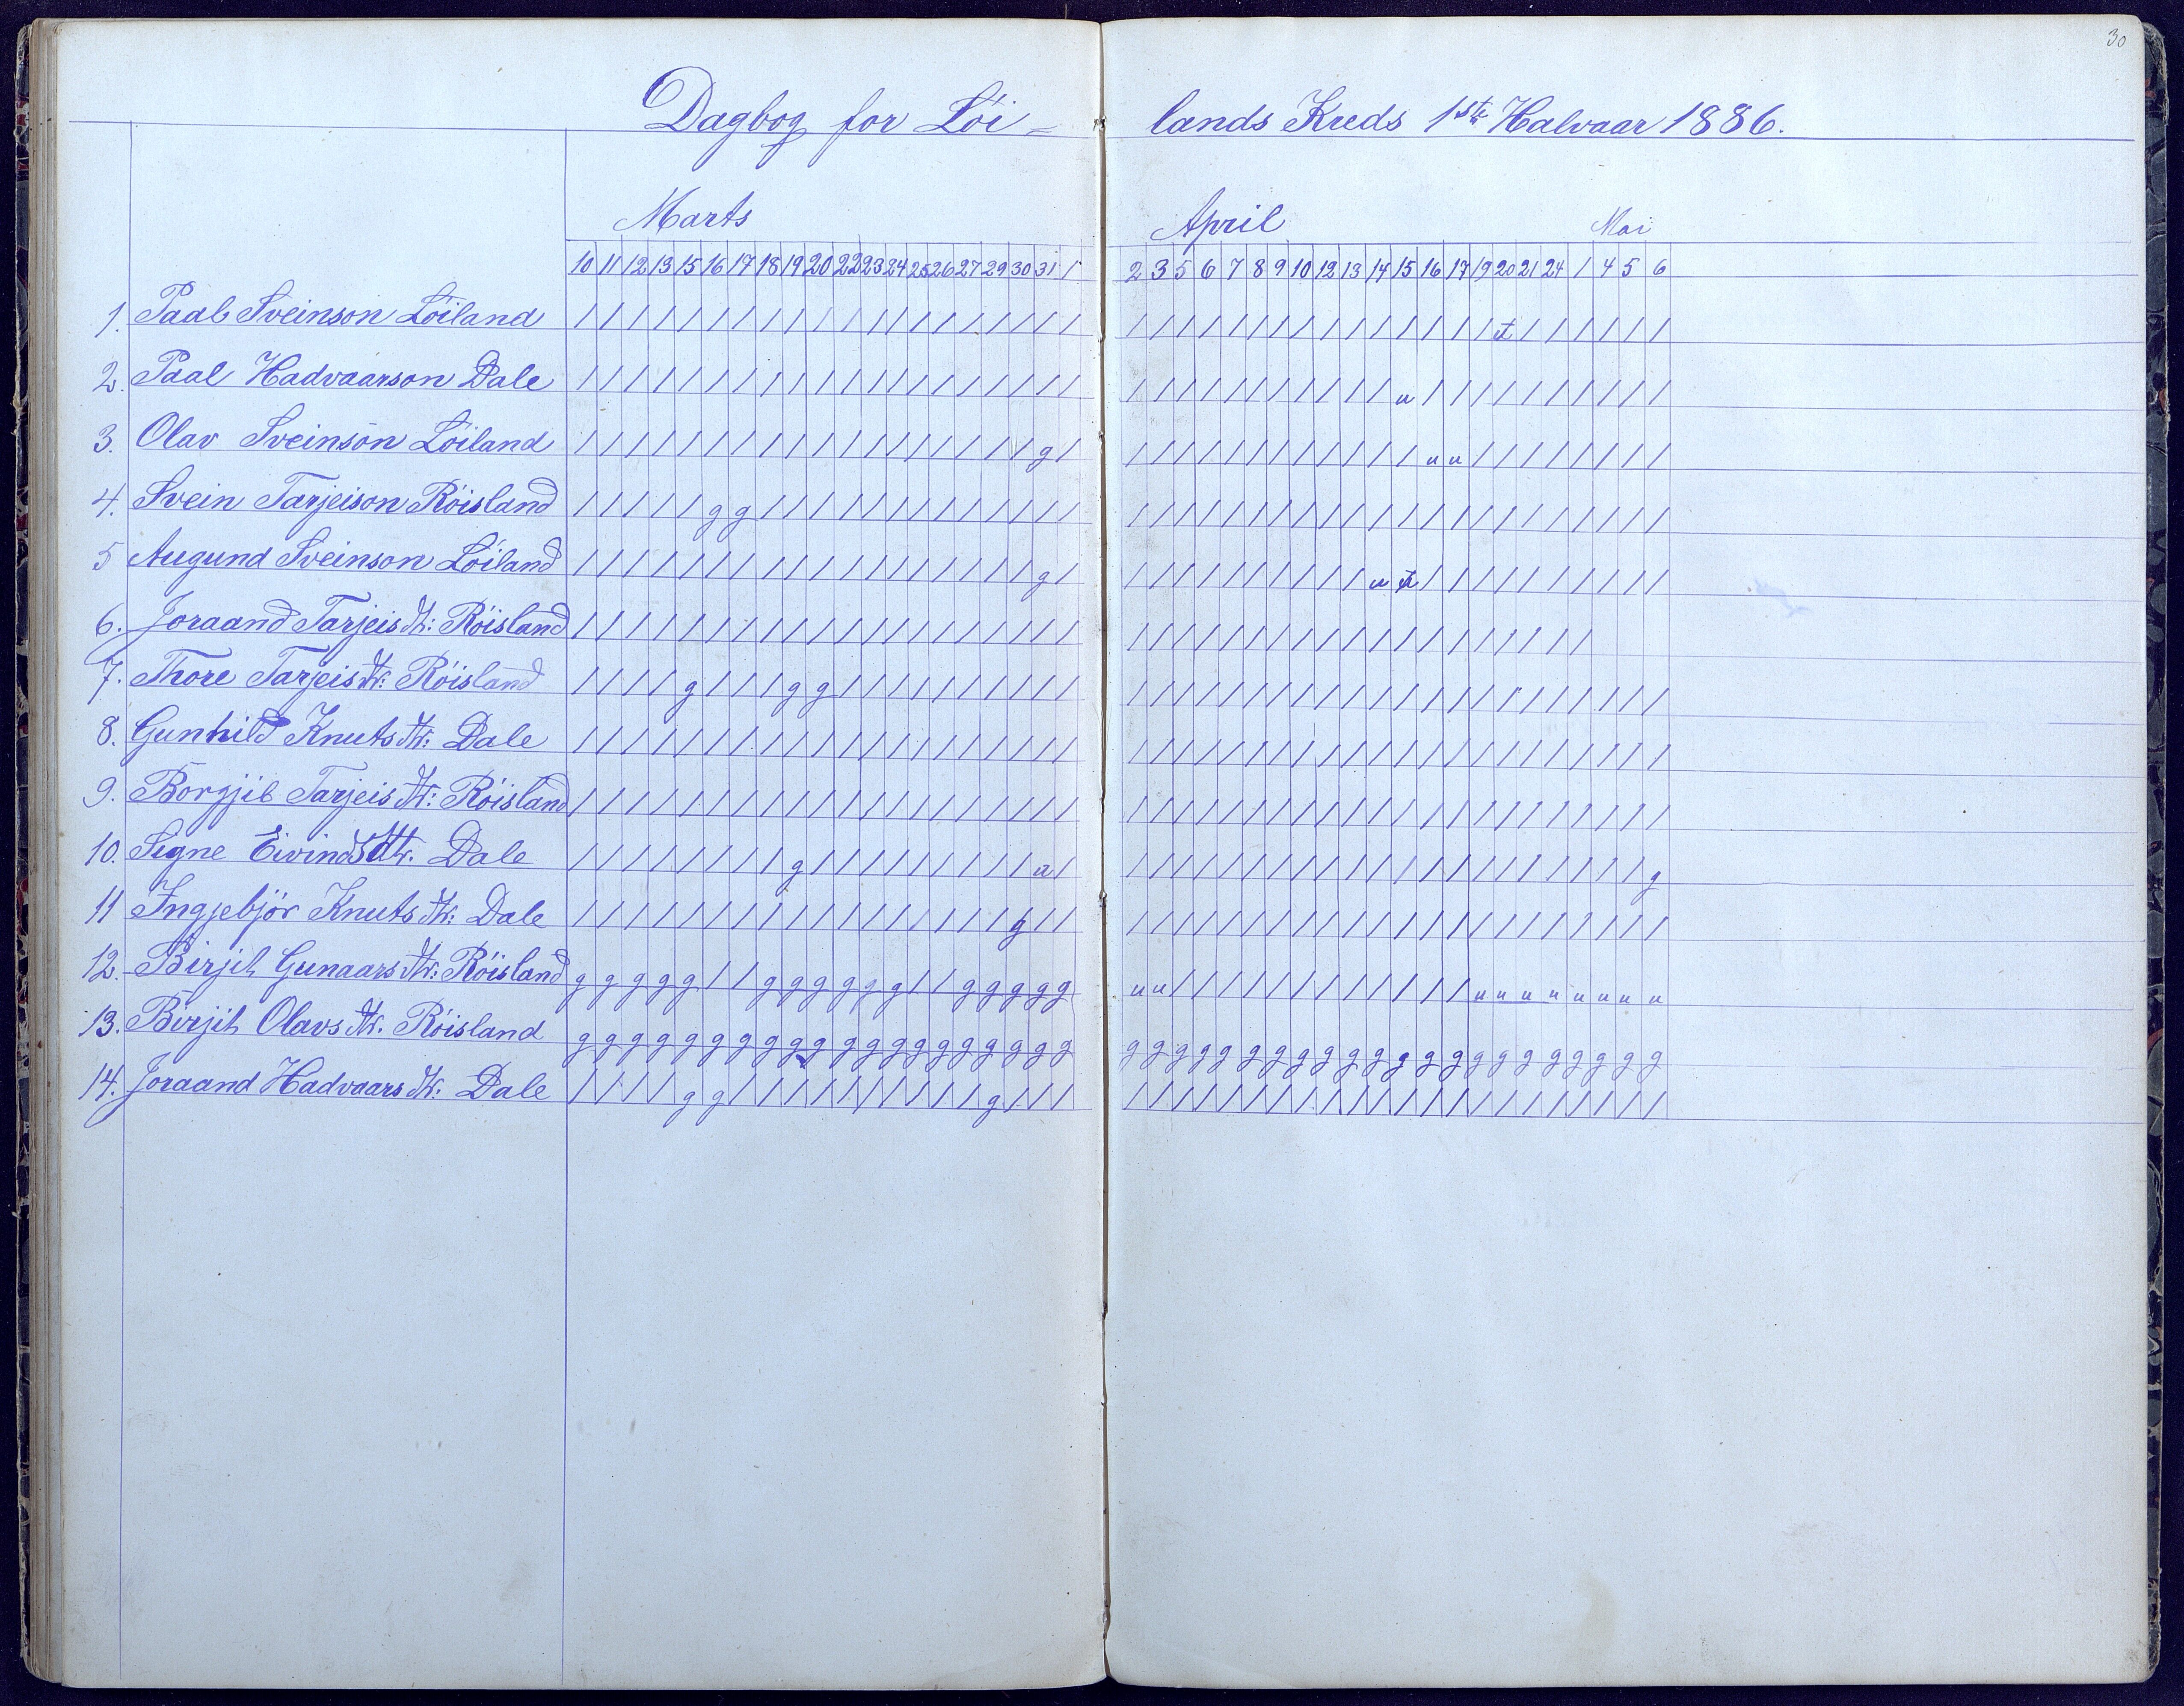 30
Dagbog for Löi- lands Kreds 1ste Halvaar 1886.
Marts April Mai
10 11 12 13 15 16 17 18 19 20 22 23 24 25 26 27 29 30 31 1 2 3 5 6 7 8 9 10 12 13 14 15 16 17 19 20 21 24 1 4 5 6
1. Paal Sveinson Löiland / / / / / / / / / / / / / / / / / / / / / / / / / / / / / / / / / / / t / / / / / /
2. Paal Hadvaarson Dale / / / / / / / / / / / / / / / / / / / / / / / / / / / / / / / u / / / / / / / / / /
3. Olav Sveinson Löiland / / / / / / / / / / / / / / / / / / g / / / / / / / / / / / / / / u u / / / / / / / /
4. Svein Tarjeison Röisland / / / / / g g / / / / / / / / / / / / / / / / / / / / / / / / / / / / / / / / / / /
5 Augund Sveinson Löiland / / / / / / / / / / / / / / / / / / g / / / / / / / / / / / u u / / / / / / / / / /
6. Joraand Tarjeis dtr: Röisland / / / / / / / / / / / / / / / / / / / / / / / / / / / / / / / / / / / / / / /
7. Thore Tarjeis dtr: Röisland / / / / g / / / g g / / / / / / / / / / / / / / / / / / / / / / / / / / / / / / / /
8. Gunhild Knuts dtr: Dale / / / / / / / / / / / / / / / / / / / / / / / / / / / / / / / / / / / / / / / / / /
9. Borgjil Tarjeis dtr: Röisland / / / / / / / / / / / / / / / / / / / / / / / / / / / / / / / / / / / / / / / / / /
10. Signe Eivinds dtr. Dale / / / / / / / / g / / / / / / / / / u / / / / / / / / / / / / / / / / / / / / / / g
11 Ingjebjör Knuts dtr: Dale / / / / / / / / / / / / / / / / / g / / / / / / / / / / / / / / / / / / / / / / / /
12. Birjit Gunaars dtr: Röisland g g g g g / / g g g g g g / / g g g g g u u / / / / / / / / / / / / u u u u u u u u
13. Birjit Olavs dtr. Röisland g g g g g g g g g g g g g g g g g g g g g g g g g g g g g g g g g g g g g g g g g g
14. Joraand Hadvaars dtr: Dale / / / / g g / / / / / / / / / / g / / / / / / / / / / / / / / / / / / / / / / / / /